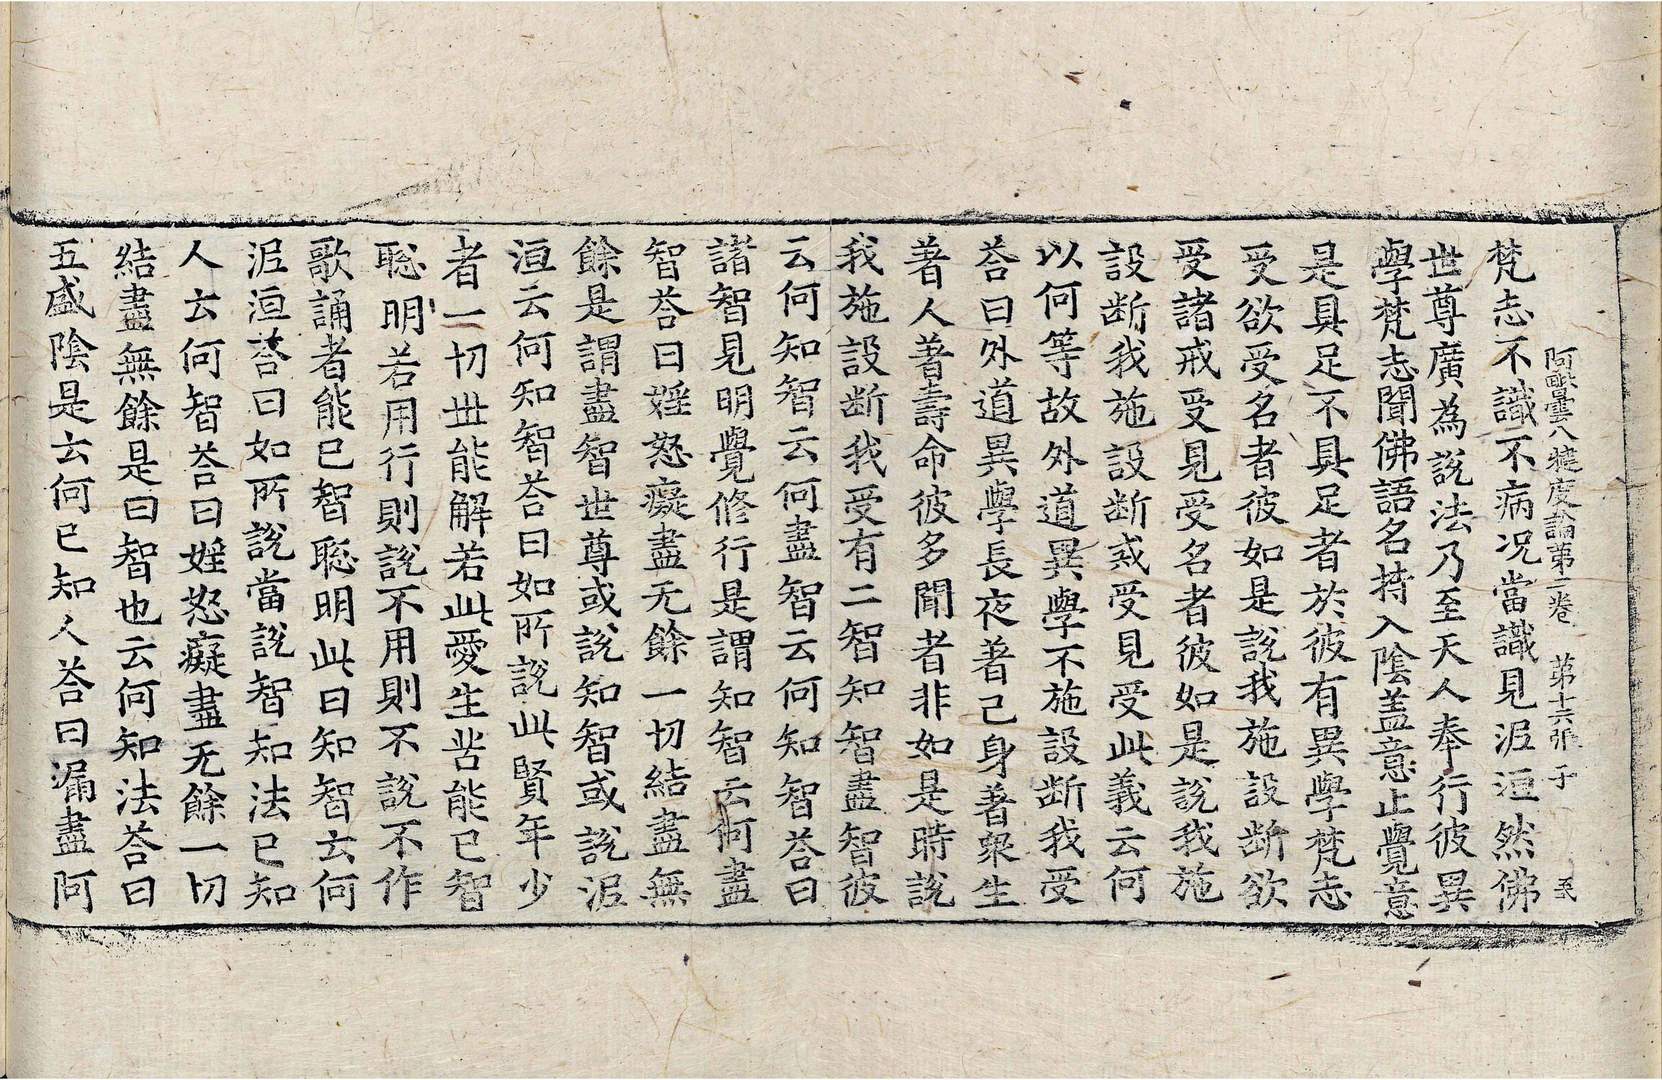 阿毗曇八犍度論第二卷　第十六張　子
梵志不識不病况當識見泥洹然佛
世尊廣為說法乃至天人奉行彼異
學梵志聞佛語名持入陰盖意止覺意
是具足不具足者於彼有異學梵志
受欲受名者彼如是說我施設断欲
受諸戒受見受名者彼如是說我施
設断我施設断戒受見受此義云何
以何等故外道異學不施設断我受
荅曰外道異學長夜著己身著衆生
著人著壽命彼多聞者非如是時說
我施設断我受有二智知智盡智彼
云何知智云何盡智云何知智荅曰
諸智見明覺脩行是謂知智云何盡
智荅曰婬怒癡盡无餘一切結盡無
餘是謂盡智世尊或說知智或說泥
洹云何知智荅曰如所說此賢年少
者一切世能解若此愛生苦能已智
聡明若用行則說不用則不說不作
歌誦者能已智聡明此曰知智云何
泥洹荅曰如所說當說智知法已知
人云何智荅曰婬怒癡盡无餘一切
結盡無餘是曰智也云何知法荅曰
五盛陰是云何已知人荅曰漏盡阿